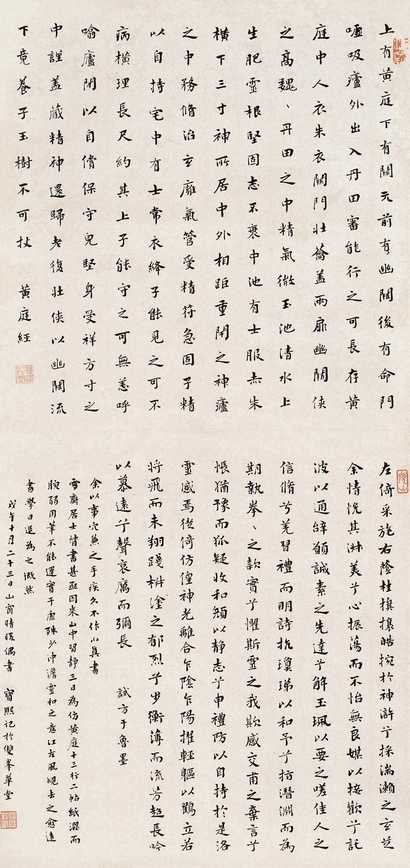 上有黄庭下有關元前有幽闕後有命門
嘘吸廬外出入丹田審能行之可長存黄
庭中人衣朱衣關門壯籥蓋兩扉幽闕俠
之高魏、丹田之中精氣微玉池清水上
生肥靈根堅固志不衰中池有士服赤朱
横下三寸神所居中外相距重閇之神廬
之中務脩治玄廱氣管受精符急固子精
以自持宅中有士常衣絳子能見之可不
病横理長尺約其上子能守之可無恙呼
噏廬閒以自償保守皃堅身受祥方寸之
中謹蓋藏精神還歸老復壯俠以幽闕流
下竟養子玉樹不可杖 黄庭經
左倚采旄右蔭桂旗攘皓捥於神滸兮採湍瀨之玄芝
余情悅其淑美兮心振蕩而不怡無良媒以接歡兮託
波以通辭願誠素之先達兮解玉珮以要之嗟佳人之
信脩兮羌習禮而明詩抗瓊珶以和予兮指潛淵而為
期執拳、之欵實兮懼斯靈之我欺感交甫之棄言兮
悵猶豫而狐疑收和顏以靜志兮申禮防以自持於是洛
靈感焉徙倚仿偟神光離合乍陰乍陽擢輕軀以鶴立若
將飛而未翔踐椒塗之郁烈兮步衡薄而流芳超長吟
以慕遠兮聲哀厲而彌長 試方于魯墨
余以事冗之手疾久不作小真書
雪齋居士情書甚亟回來山中習靜三日為仿黄庭十三行二帖紙澀而
腕弱用筆不能運實于虚殊少沖澹靈和之意江左風去之愈遠
書學日退為之慨然
戊午十月二十三日山窗晴後偶書 寶熙記於雙峯草堂